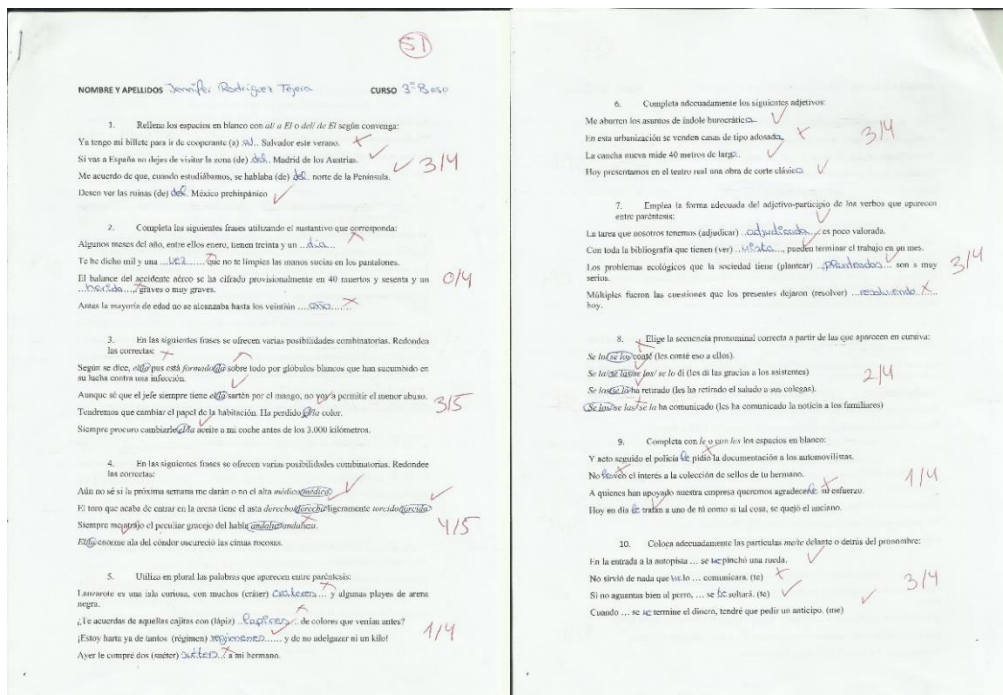 51
NOMBRE Y APELLIDOS Jennifer Rodríguez Tejera CURSO 3º B eso
1. Rellena los espacios en blanco con al/ a El o del/ de El según convenga:
Ya tengo mi billete para ir de cooperante (a) al.. Salvador este verano.
Si vas a España no dejes de visitar la zona (de) del.. Madrid de los Austrias.
3/4
Me acuerdo de que, cuando estudiábamos, se hablaba (de) del.. norte de la Península.
Deseo ver las ruinas (de) del.. México prehispánico
2. Completa las siguientes frases utilizando el sustantivo que corresponda:
Algunos meses del año, entre ellos enero, tienen treinta y un ...día...
Te he dicho mil y una ...vez...... que no te limpies las manos sucias en los pantalones.
El balance del accidente aéreo se ha cifrado provisionalmente en 40 muertos y sesenta y un
0/4
...herido..., graves o muy graves.
Antes la mayoría de edad no se alcanzaba hasta los veintiún ....año...
3. En las siguientes frases se ofrecen varias posibilidades combinatorias. Redondea
las correctas:
Según se dice, el/la pus está formado/da sobre todo por glóbulos blancos que han sucumbido en
su lucha contra una infección.
Aunque sé que el jefe siempre tiene el/la sartén por el mango, no voy a permitir el menor abuso.
3/5
Tendremos que cambiar el papel de la habitación. Ha perdido el/la color.
Siempre procuro cambiarle el/la aceite a mi coche antes de los 3.000 kilómetros.
4. En las siguientes frases se ofrecen varias posibilidades combinatorias. Redondee
las correctas:
Aún no sé si la próxima semana me darán o no el alta médico/médica.
El toro que acaba de entrar en la arena tiene el asta derecho/derecha ligeramente torcido/torcida.
Siempre me atrajo el peculiar gracejo del habla andaluz/andaluza.
4/5
El/la enorme ala del cóndor oscureció las cimas rocosas.
5. Utiliza en plural las palabras que aparecen entre paréntesis:
Lanzarote es una isla curiosa, con muchos (cráter) ... y algunas playas de arena
negra.
¿Te acuerdas de aquellas cajitas con (lápiz) ..... de colores que venían antes?
¡Estoy harta ya de tantos (régimen) regimenes...... y de no adelgazar ni un kilo!
1/4
Ayer le compré dos (suéter) ... a mi hermano.
6. Completa adecuadamente los siguientes adjetivos:
Me aburren los asuntos de índole burocrátic
En esta urbanización se venden casas de tipo adosada.
3/4
La cancha nueva mide 40 metros de largo..
Hoy presentamos en el teatro real una obra de corte clásic
7. Emplea la forma adecuada del adjetivo-participio de los verbos que aparecen
entre paréntesis:
La tarea que nosotros tenemos (adjudicar) ..adjudicada.., es poco valorada.
Con toda la bibliografía que tienen (ver) ..vista..., pueden terminar el trabajo en un mes.
Los problemas ecológicos que la sociedad tiene (plantear) ..planteados... son a muy
3/4
serios.
Múltiples fueron las cuestiones que los presentes dejaron (resolver) ...resolviendo....
hoy.
8. Elige la secuencia pronominal correcta a partir de las que aparecen en cursiva:
Se lo/se los conté (les conté eso a ellos).
Se la/se las/se los/ se lo di (les di las gracias a los asistentes)
2/4
Se los/se la ha retirado (les ha retirado el saludo a sus colegas).
Se los/se las/se la ha comunicado (les ha comunicado la noticia a los familiares)
9. Completa con le o con les los espacios en blanco:
Y acto seguido el policía le pidió la documentación a los automovilistas.
No ven el interés a la colección de sellos de tu hermano.
1/4
A quienes han apoyado nuestra empresa queremos agradecerle su esfuerzo.
Hoy en día le tratan a uno de tú como si tal cosa, se quejó el anciano.
10. Coloca adecuadamente las partículas me/te delante o detrás del pronombre:
En la entrada a la autopista ... se me pinchó una rueda.
No sirvió de nada que lo ... comunicara. (te)
3/4
Si no aguantas bien al perro, ... se te soltará. (te)
Cuando ... se me termine el dinero, tendré que pedir un anticipo. (me)